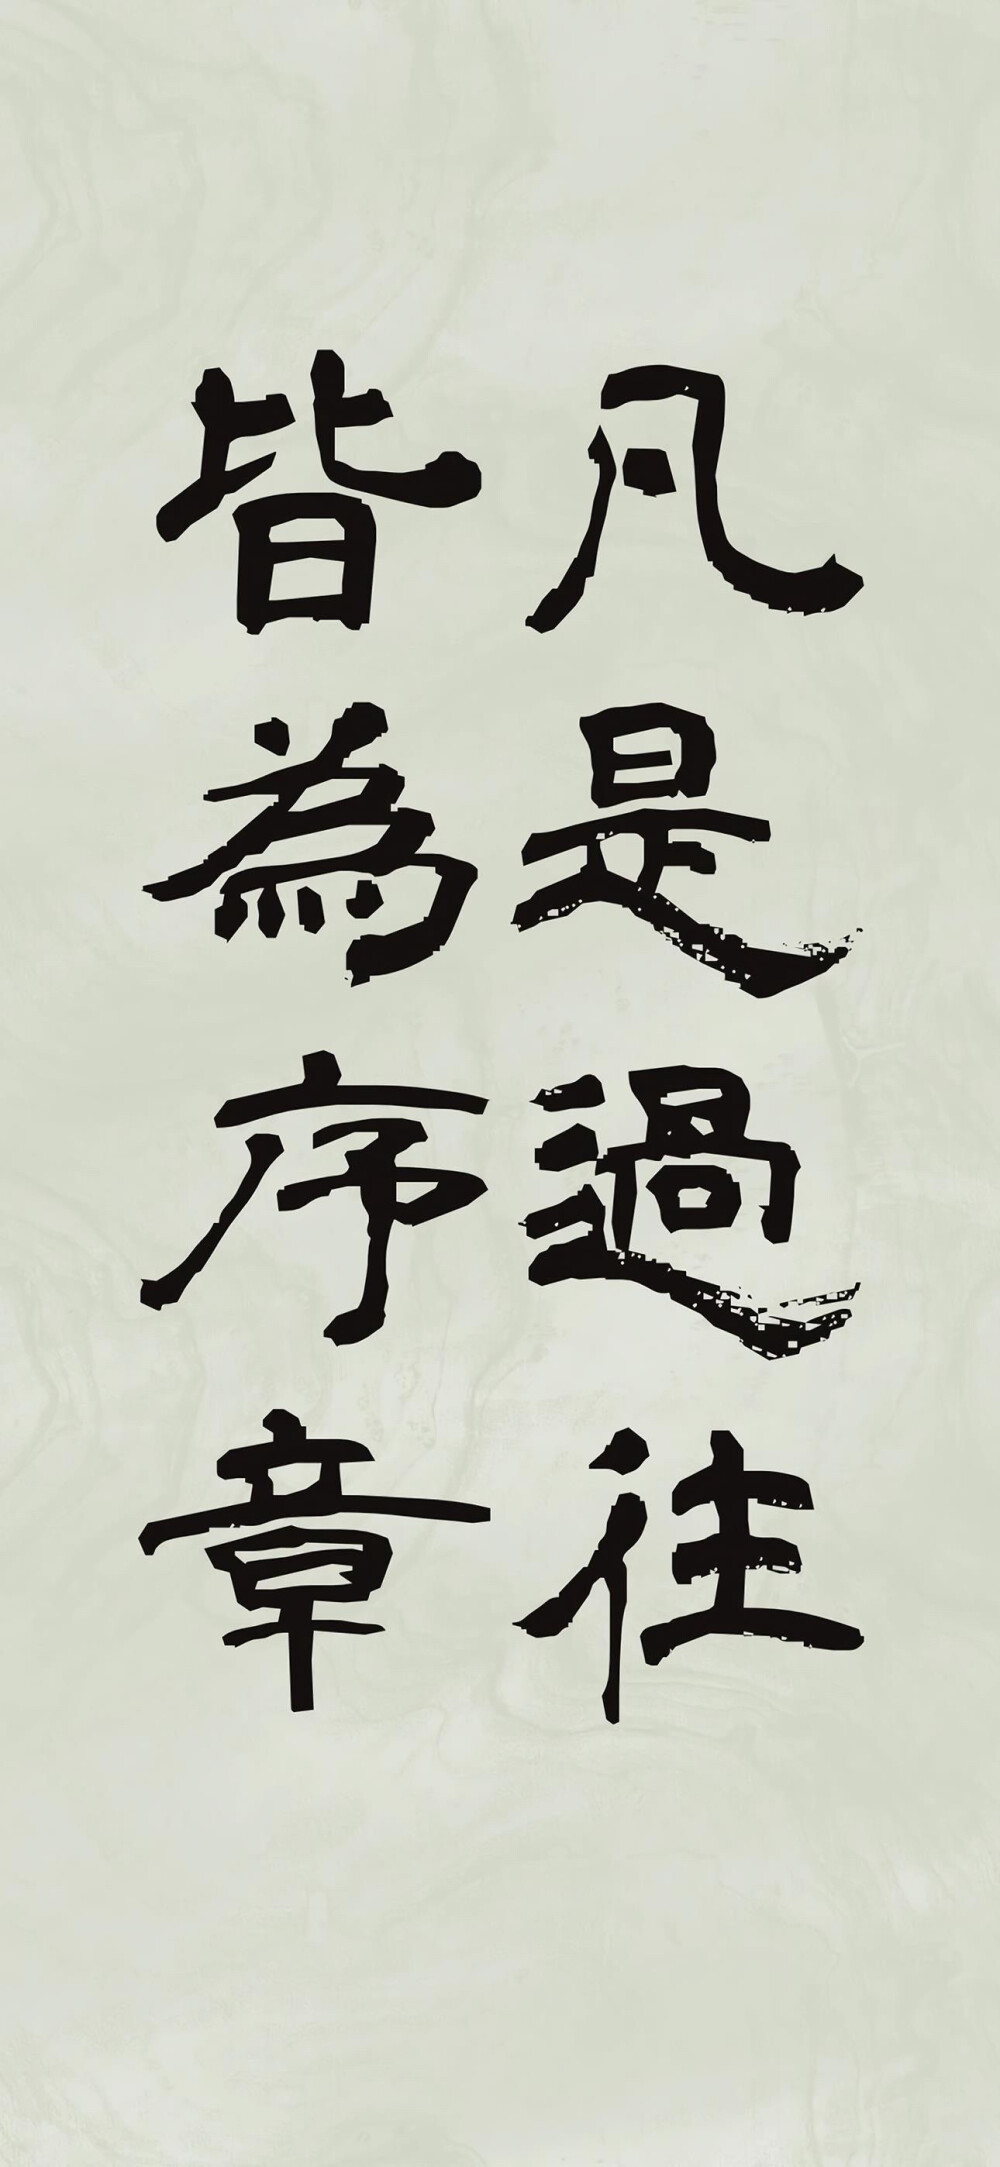 凡是過往
皆為序章